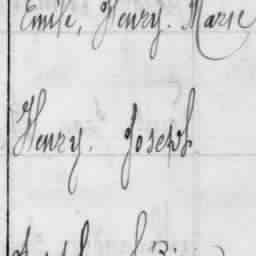 Emile, Henry. Marie
Henry. Joseph